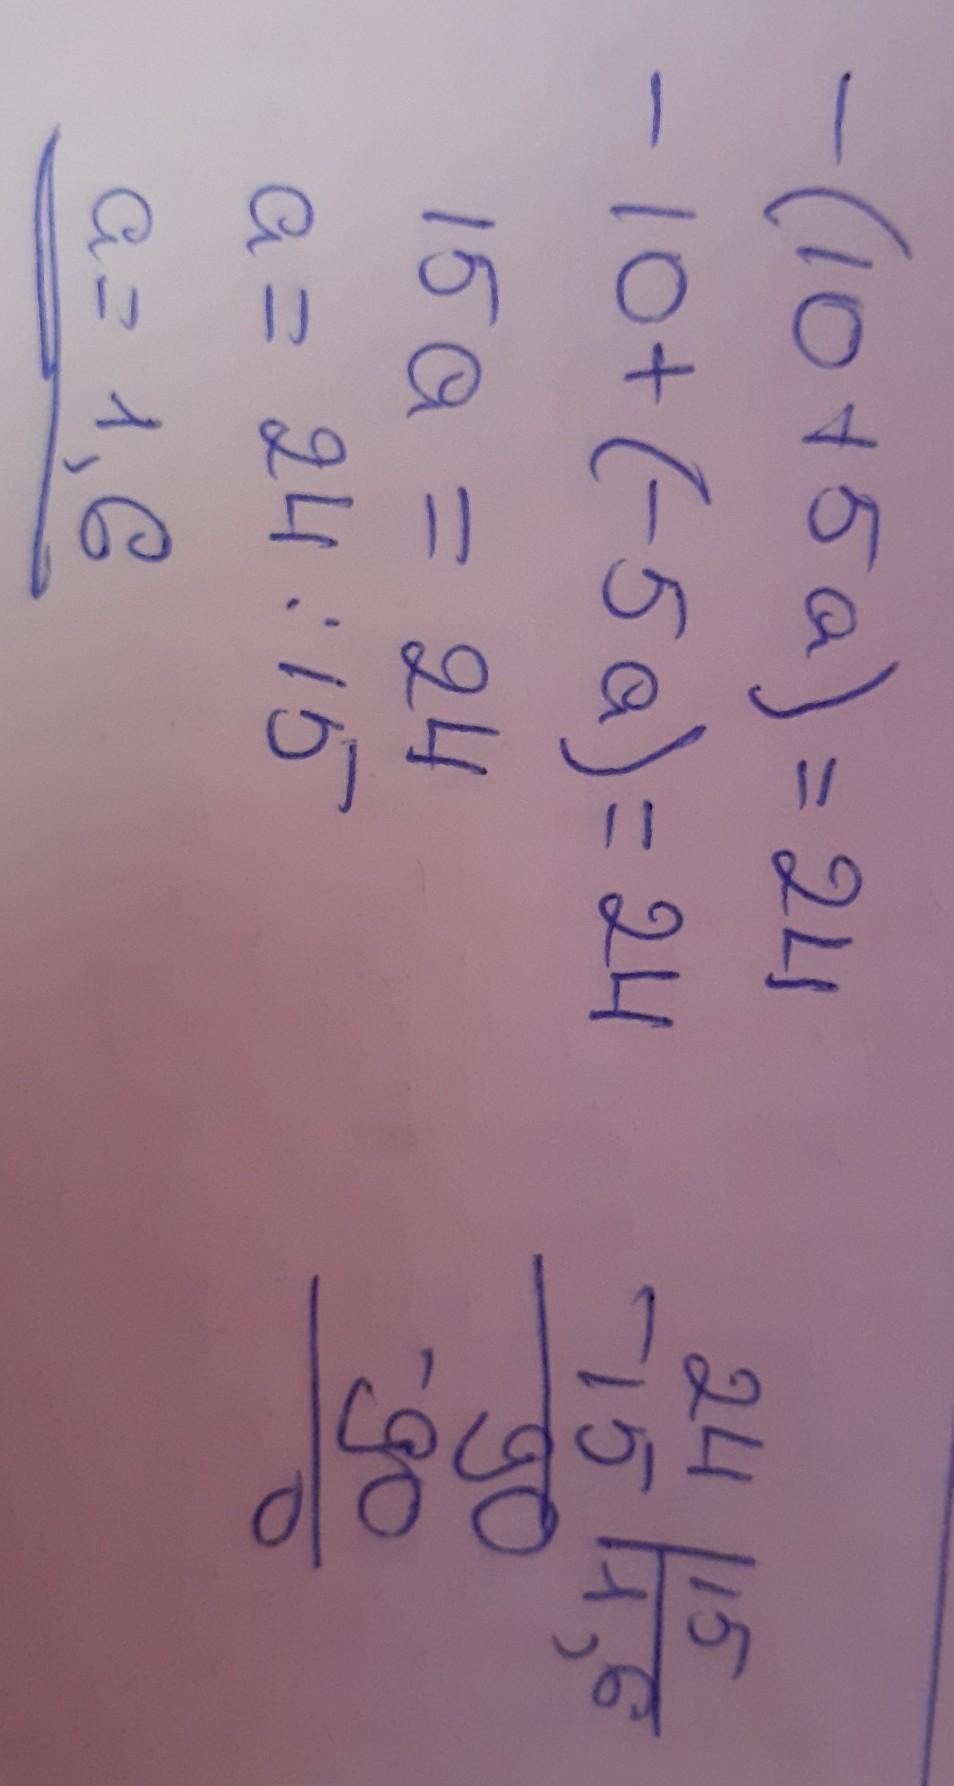 -(10+5a)=24
-10+(-5a)=24
15a=24
a=24:15
a=1,6
24|15
-15|1,6
90
-90
0